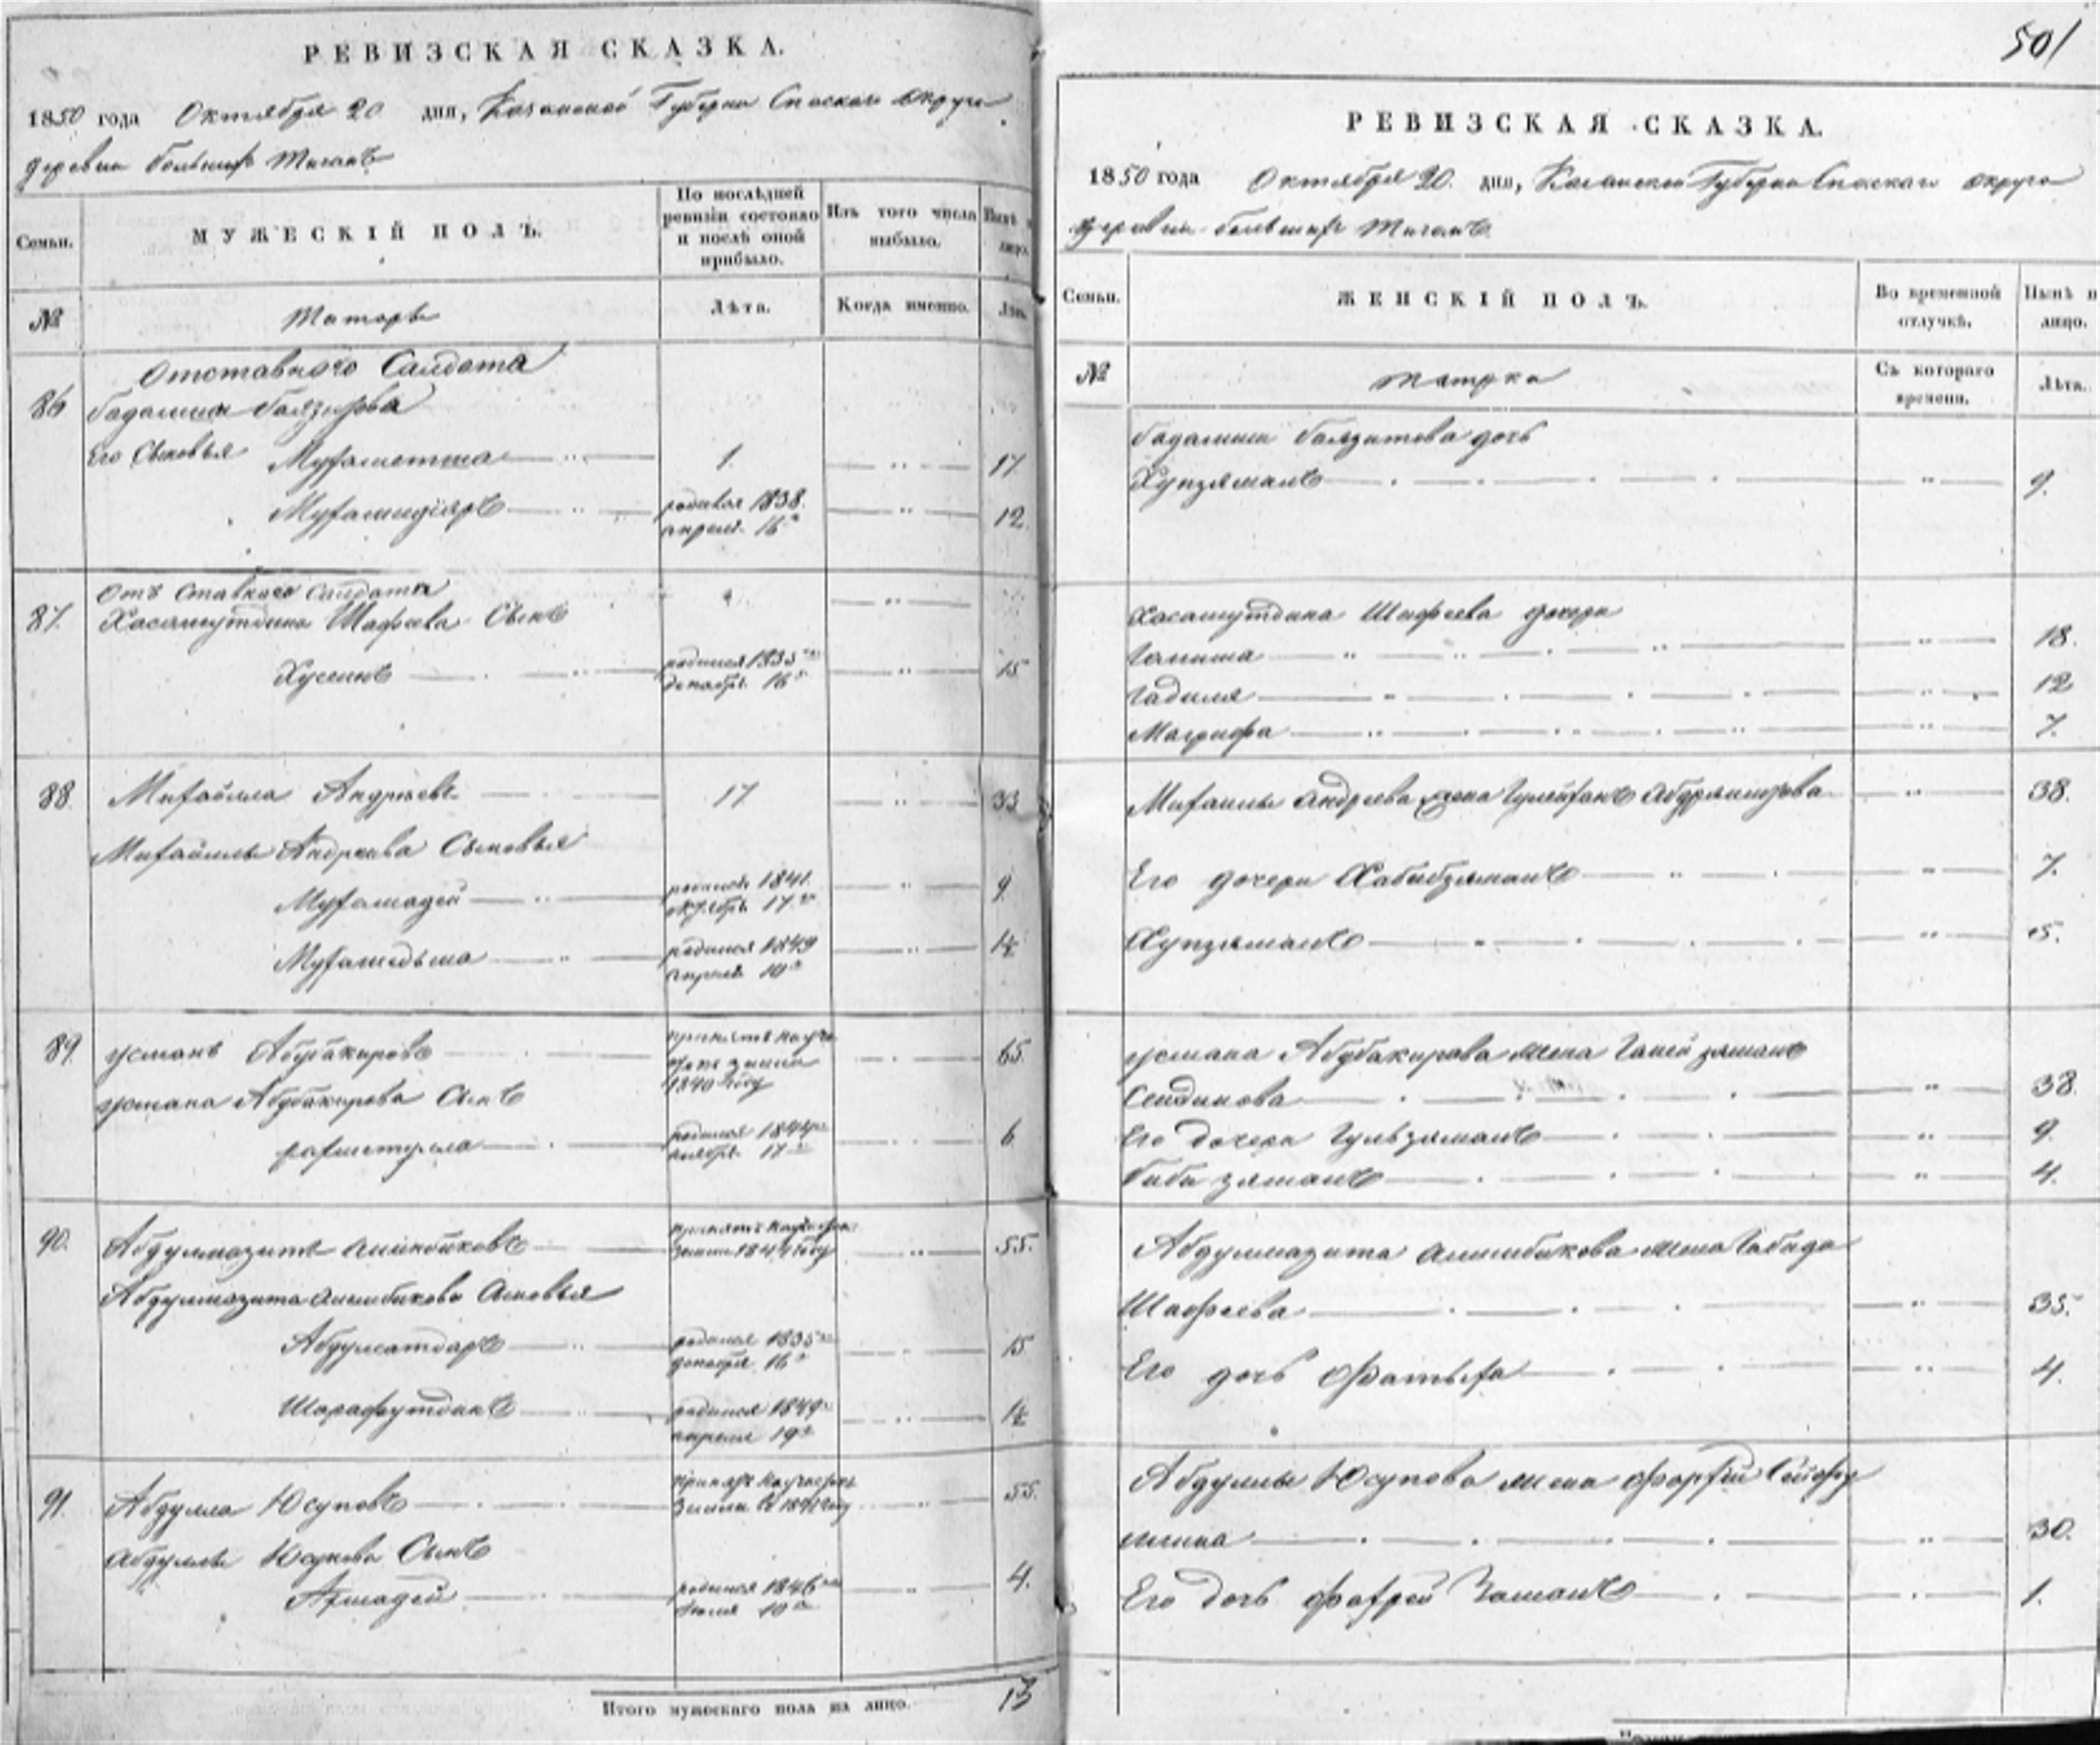 РЕВИЗСКАЯ СКАЗКА.
1850 года Октября 20 дня, Казанской Губернии Спаскаго округа
деревни Большихъ Тиганъ
Семьи.
МУЖЕСКІЙ ПОЛЪ.
По послѣдней ревизіи состояло и послѣ оной прибыло.
Изъ того числа выбыло.
Нынѣ на лицо.
№
Татары
Лѣта.
Когда именно.
Лѣта.
86
Отставного Салдата
Бадамши Баязитова
Его Сыновья Мухаметша 1 17
Мухамидіяръ родился 1838 апреля 16го 12
87.
Отъ Ставного Салдата
Хасамутдина Шафеева Сынъ
Хусеинъ родился 1835го декабря 16го 15
88.
Михайлла Андреевъ 17 33
Михайллы Андреева Сыновья
Мухамадей родился 1841 октября 17го 9
Мухамедьша родился 1849 апреля 10го 1½
89.
Усманъ Абубакировъ 1840 году 65.
Усмана Абубакирова Сынъ
Рахметулла родился 1844го ноября 17го 6
90.
1844 году 55.
Сыновья
Абдулсатдаръ родился 1835го декабря 16го 15
Шарафутдинъ родился 1849го апреля 19го 1½
91.
Абдулла Юсуповъ 55.
Абдуллы Юсупова Сынъ
Ахмадей родился 1846го 10го 4.
Итого мужескаго пола на лицо. 13
501
РЕВИЗСКАЯ СКАЗКА.
1850 года Октября 20. дня, Казанской Губернии Спаскаго округа
деревни Большихъ Тиганъ.
Семьи.
ЖЕНСКІЙ ПОЛЪ.
Во временной отлучкѣ.
Нынѣ на лицо.
№
Татарки
Съ котораго времени.
Лѣта.
Бадамши Баязитова дочь
Хупзяманъ 9.
Хасамутдина Шафеева дочери
18.
Гадиля 12
Магрифа 7.
Михаиллы Андреева жена 38.
Его дочери Хабибзяманъ 7.
Хупзяманъ 5.
Усмана Абубакирова жена
Сеидинова 38.
Его дочери Гульзяманъ 9.
Биби зяманъ 4.
жена Габида
Шафеева 35.
Его дочь Фатыха 4.
Абдуллы Юсупова жена
30.
Его дочь Заманъ 1.